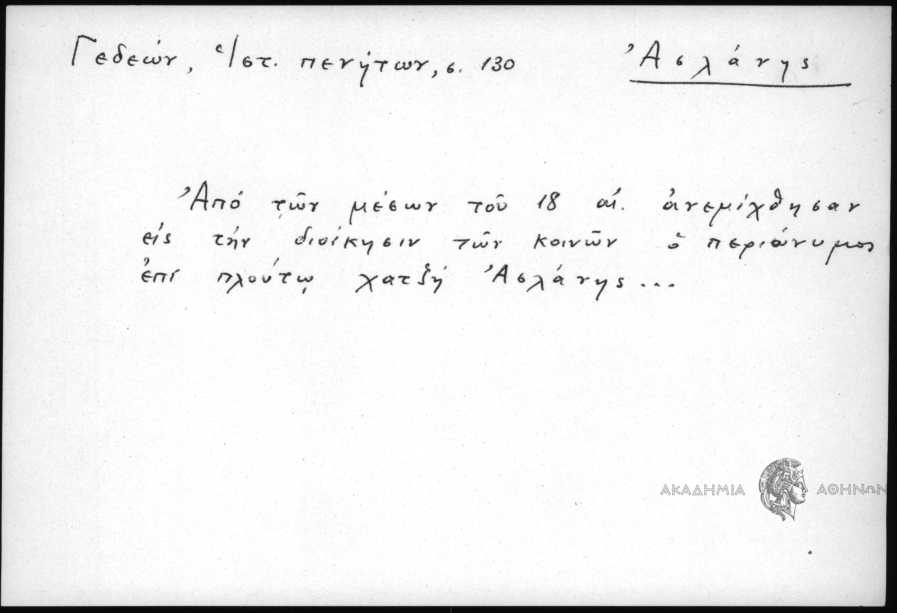 Γεδεών, Ἱστ. πενήτων, σ. 130
Ἀσλάνης
Ἀπό τῶν μέσων τοῦ 18 αἰ. ἀνεμίχθησαν
εἰς τήν διοίκησιν τῶν κοινῶν ὁ περιώνυμος
ἐπί πλούτῳ χατζῆ Ἀσλάνης...
ΑΚΑΔΗΜΙΑ ΑΘΗΝΩΝ